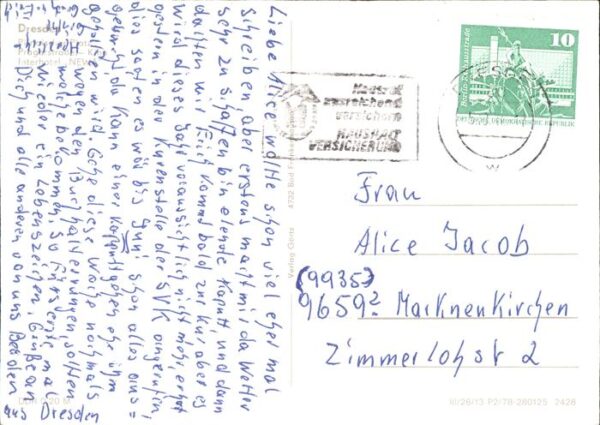 Liebe Alice wollte schon viel eher mal
schreiben aber erstens macht mir da Wetter
sehr zu schaffen bin elende kaputt, und dann
dachten wir Erich kommt bald zur Kur aber es
wird dieses Jahr voraussichtlich nicht mehr, er hat
gestern in der Kurenstelle der SVK angerufen,
dies sagten es wär bis Juni schon alles aus=
gebucht, da kann einer kaputtgehen eh ihm
geholfen wird. Gehe diese Woche nochmals
wegen den
molebekommen, so fürs erst mal
wieder ein Lebenszeichen. Grüße an
Dich und alle anderen von uns Beiden
aus Dresden
Dresden
Interhotel "NEWA"
DDR 0,20 M
Verlag Görtz 4732 Bad Frankenhausen
Neutral
ausreichend
versichern
HAUSHALT
VERSICHERUNG
10
DEUTSCHE DEMOKRATISCHE REPUBLIK
Frau
Alice Jacob
(9935)
9659² Markneukirchen
Zimmerlohstr 2
III/26/13 P2/78-280125 2426